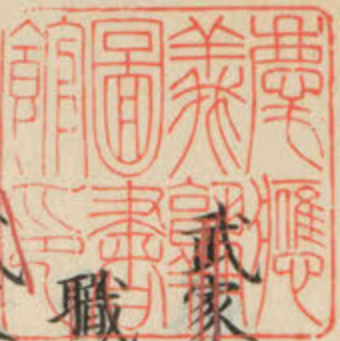 慶應
義塾
圖書
館印
武家
職